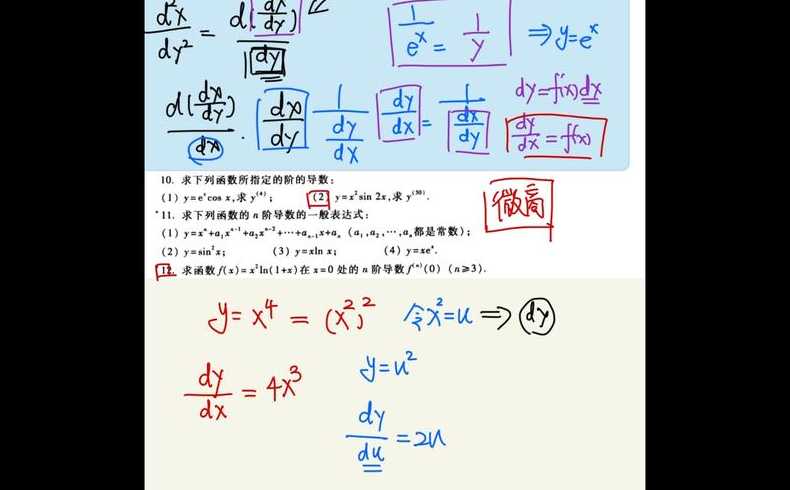 d²x/dy² = d(dx/dy)/dy
1/eˣ = 1/y ⇒ y=eˣ
d(dx/dy)/dx · dx/dy 1/(dy/dx) dy/dx = 1/(dx/dy)
dy=f'(x)dx
dy/dx = f'(x)
10. 求下列函数所指定的阶的导数:
(1) y=eˣcos x,求 y⁽⁴⁾; (2) y=x²sin 2x,求 y⁽⁵⁰⁾.
微商
*11. 求下列函数的 n 阶导数的一般表达式:
(1) y=xⁿ+a₁xⁿ⁻¹+a₂xⁿ⁻²+⋯+aₙ₋₁x+aₙ (a₁,a₂,⋯,aₙ都是常数);
(2) y=sin²x; (3) y=xln x; (4) y=xeˣ.
12. 求函数 f(x)=x²ln(1+x)在 x=0 处的 n 阶导数 f⁽ⁿ⁾(0) (n≥3).
y=x⁴=(x²)² 令x²=u ⇒ dy
y=u²
dy/dx = 4x³
dy/du = 2u